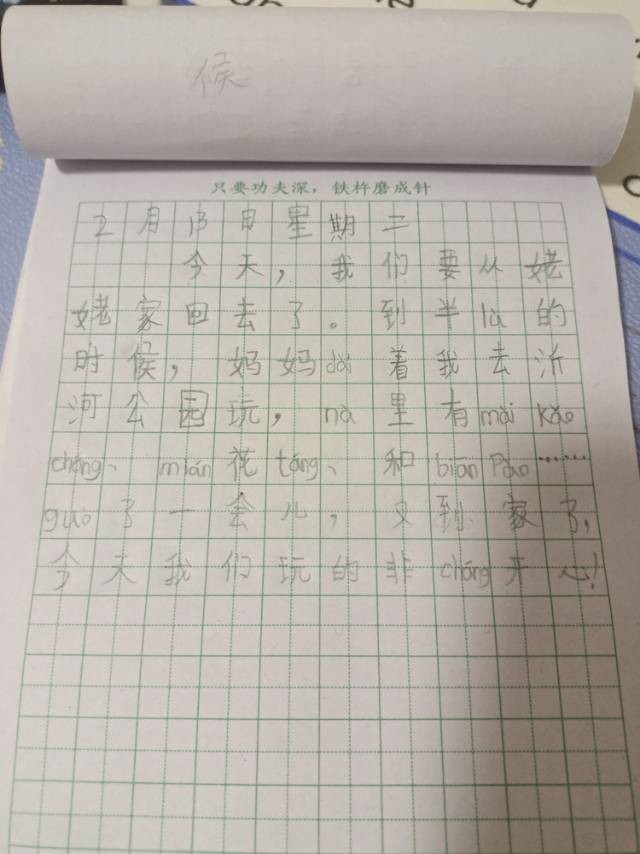 候
只要功夫深，铁杵磨成针
2月13日星期二
今天，我们要从姥
姥家回去了。到半lù的
时候，妈妈dài着我去沂
河公园玩，nà里有mài kǎo
cháng、mián花táng、和biān Pào……
guò了一会儿，又到家了，
今天我们玩的非cháng开心！